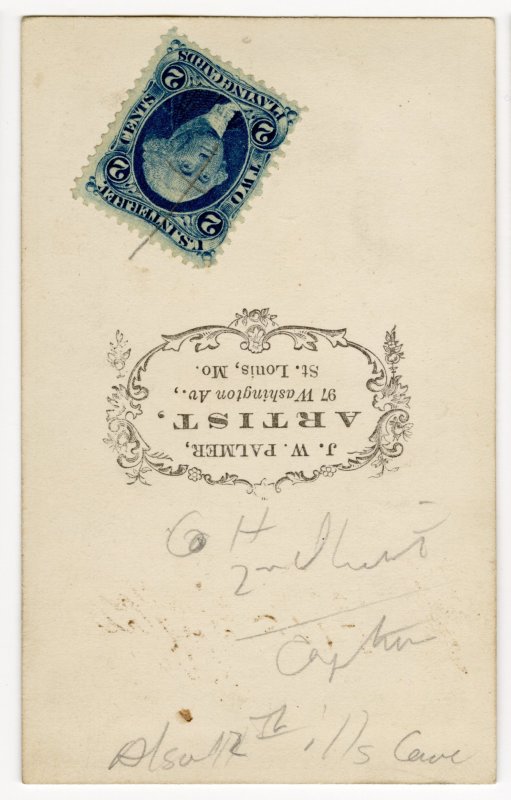 U.S. INTER. REV.
2 2
PLAYING CARDS
CENTS
TWO
2 2
J. W. PALMER,
ARTIST,
97 Washington Av.,
St. Louis, Mo.
Co H
2nd Lieut
Capten
Also 12th ills Cave